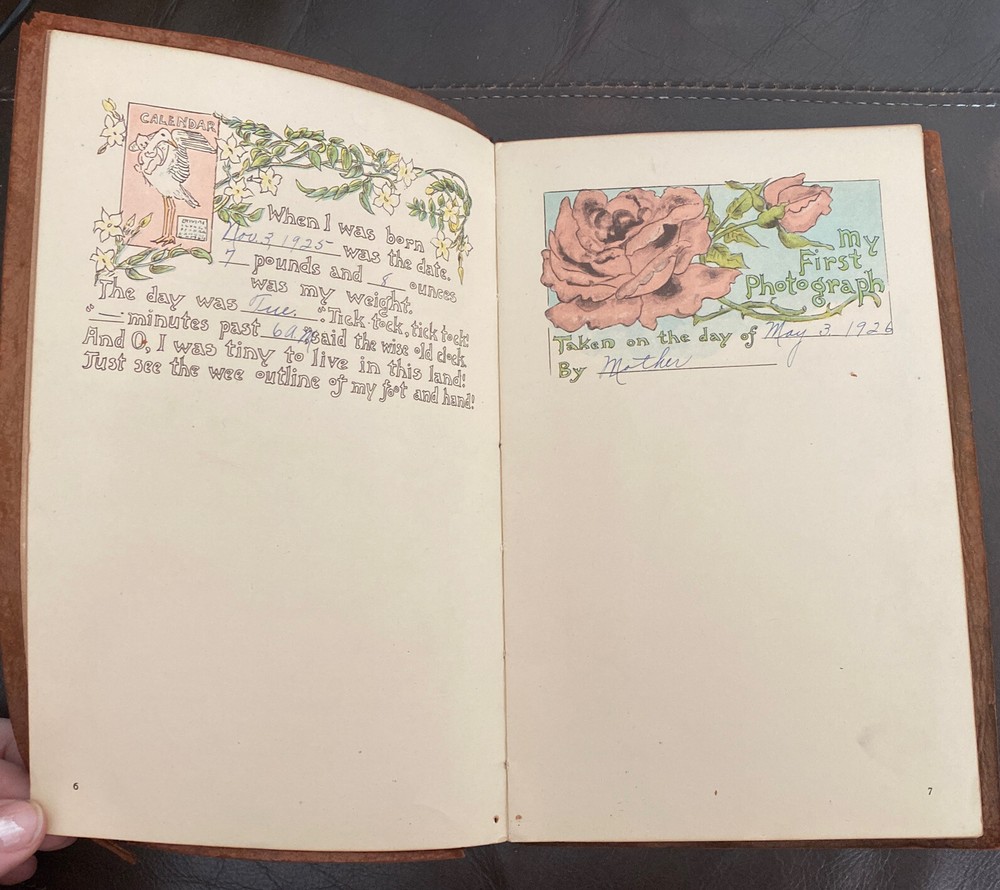 CALENDAR
When I was born
Nov. 3, 1925 was the date.
7 pounds and 8 ounces
was my weight.
The day was Tue. "Tick-tock, tick tock!
"— minutes past 6 a.m. said the wise old clock.
And O, I was tiny to live in this land!
Just see the wee outline of my foot and hand!
6
My
First
Photograph
Taken on the day of May 3, 1926
By Mother
7